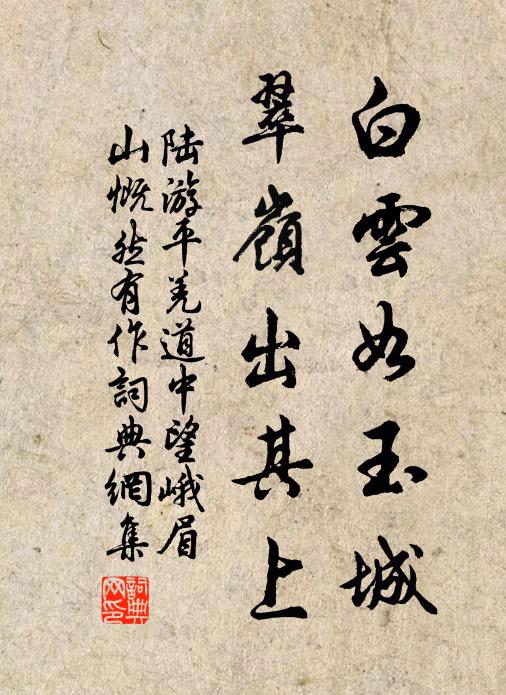 白雲如玉城
翠嶺出其上
陸游平羌道中望峨眉
山慨然有作詞典網集
詞典